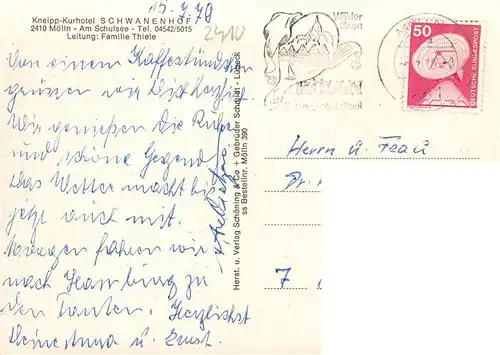 15.7.79
Kneipp-Kurhotel SCHWANENHOF
2410 Mölln - Am Schulsee - Tel. 04542/5015
Leitung: Familie Thiele
2410
Von einem Kaffeestündchen
grüssen wir Dich herzlich.
Wir genießen die Ruhe
und schöne Gegend
Das Wetter macht bis
jetzt auch mit.
Morgen fahren wir
nach Hamburg zu
den Tanten. Herzlichst
Deine Anna u. Ernst.
Herst. u. Verlag Schöning & Co + Gebrüder Schmidt, Lübeck
ss Bestellnr. Mölln 390
Wälder
Seen
50
DEUTSCHE BUNDESPOST
Herrn u. Frau
Dr.
7